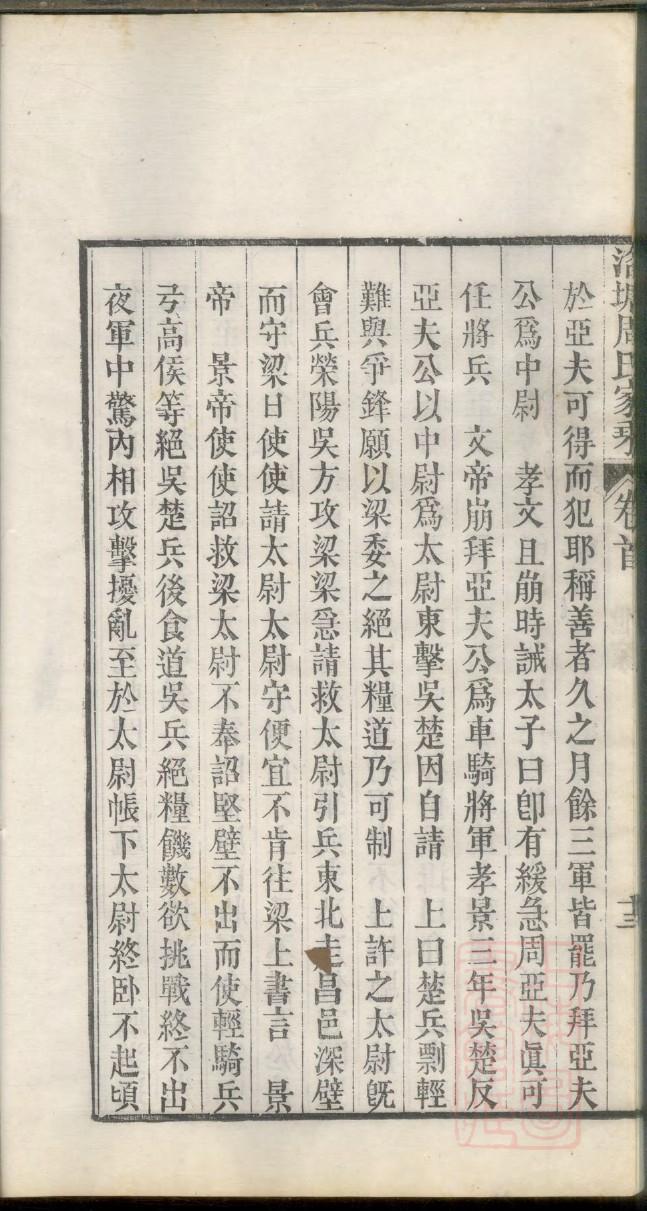 周氏家乘 卷首 十三
於亞夫可得而犯耶稱善者久之月餘三軍皆罷乃拜亞夫
公爲中尉　孝文且崩時誡太子曰卽有緩急周亞夫眞可
任將兵　文帝崩拜亞夫公爲車騎將軍孝景三年吳楚反
亞夫公以中尉爲太尉東擊吳楚因自請　上曰楚兵剽輕
難與爭鋒願以梁委之絕其糧道乃可制　上許之太尉旣
會兵榮陽吳方攻梁梁急請救太尉引兵東北走昌邑深壁
而守梁日使使請太尉太尉守便宜不肯往梁上書言　景
帝　景帝使使詔救梁太尉不奉詔堅壁不出而使輕騎兵
弓高侯等絕吳楚兵後食道吳兵絕糧饑數欲挑戰終不出
夜軍中驚內相攻擊擾亂至於太尉帳下太尉終卧不起頃